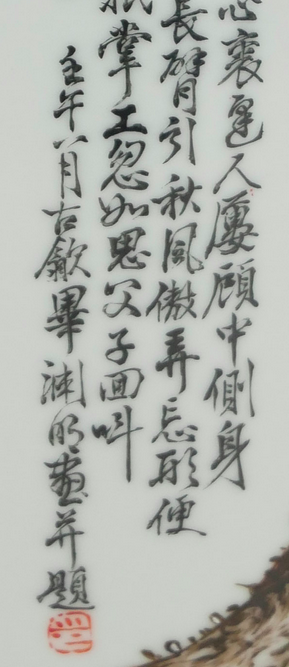 心裏逞人屢顧中側身
長臂引秋風傲弄忘形便
掌工忽如思父子回叫
壬午八月古歙畢淵明畫并題